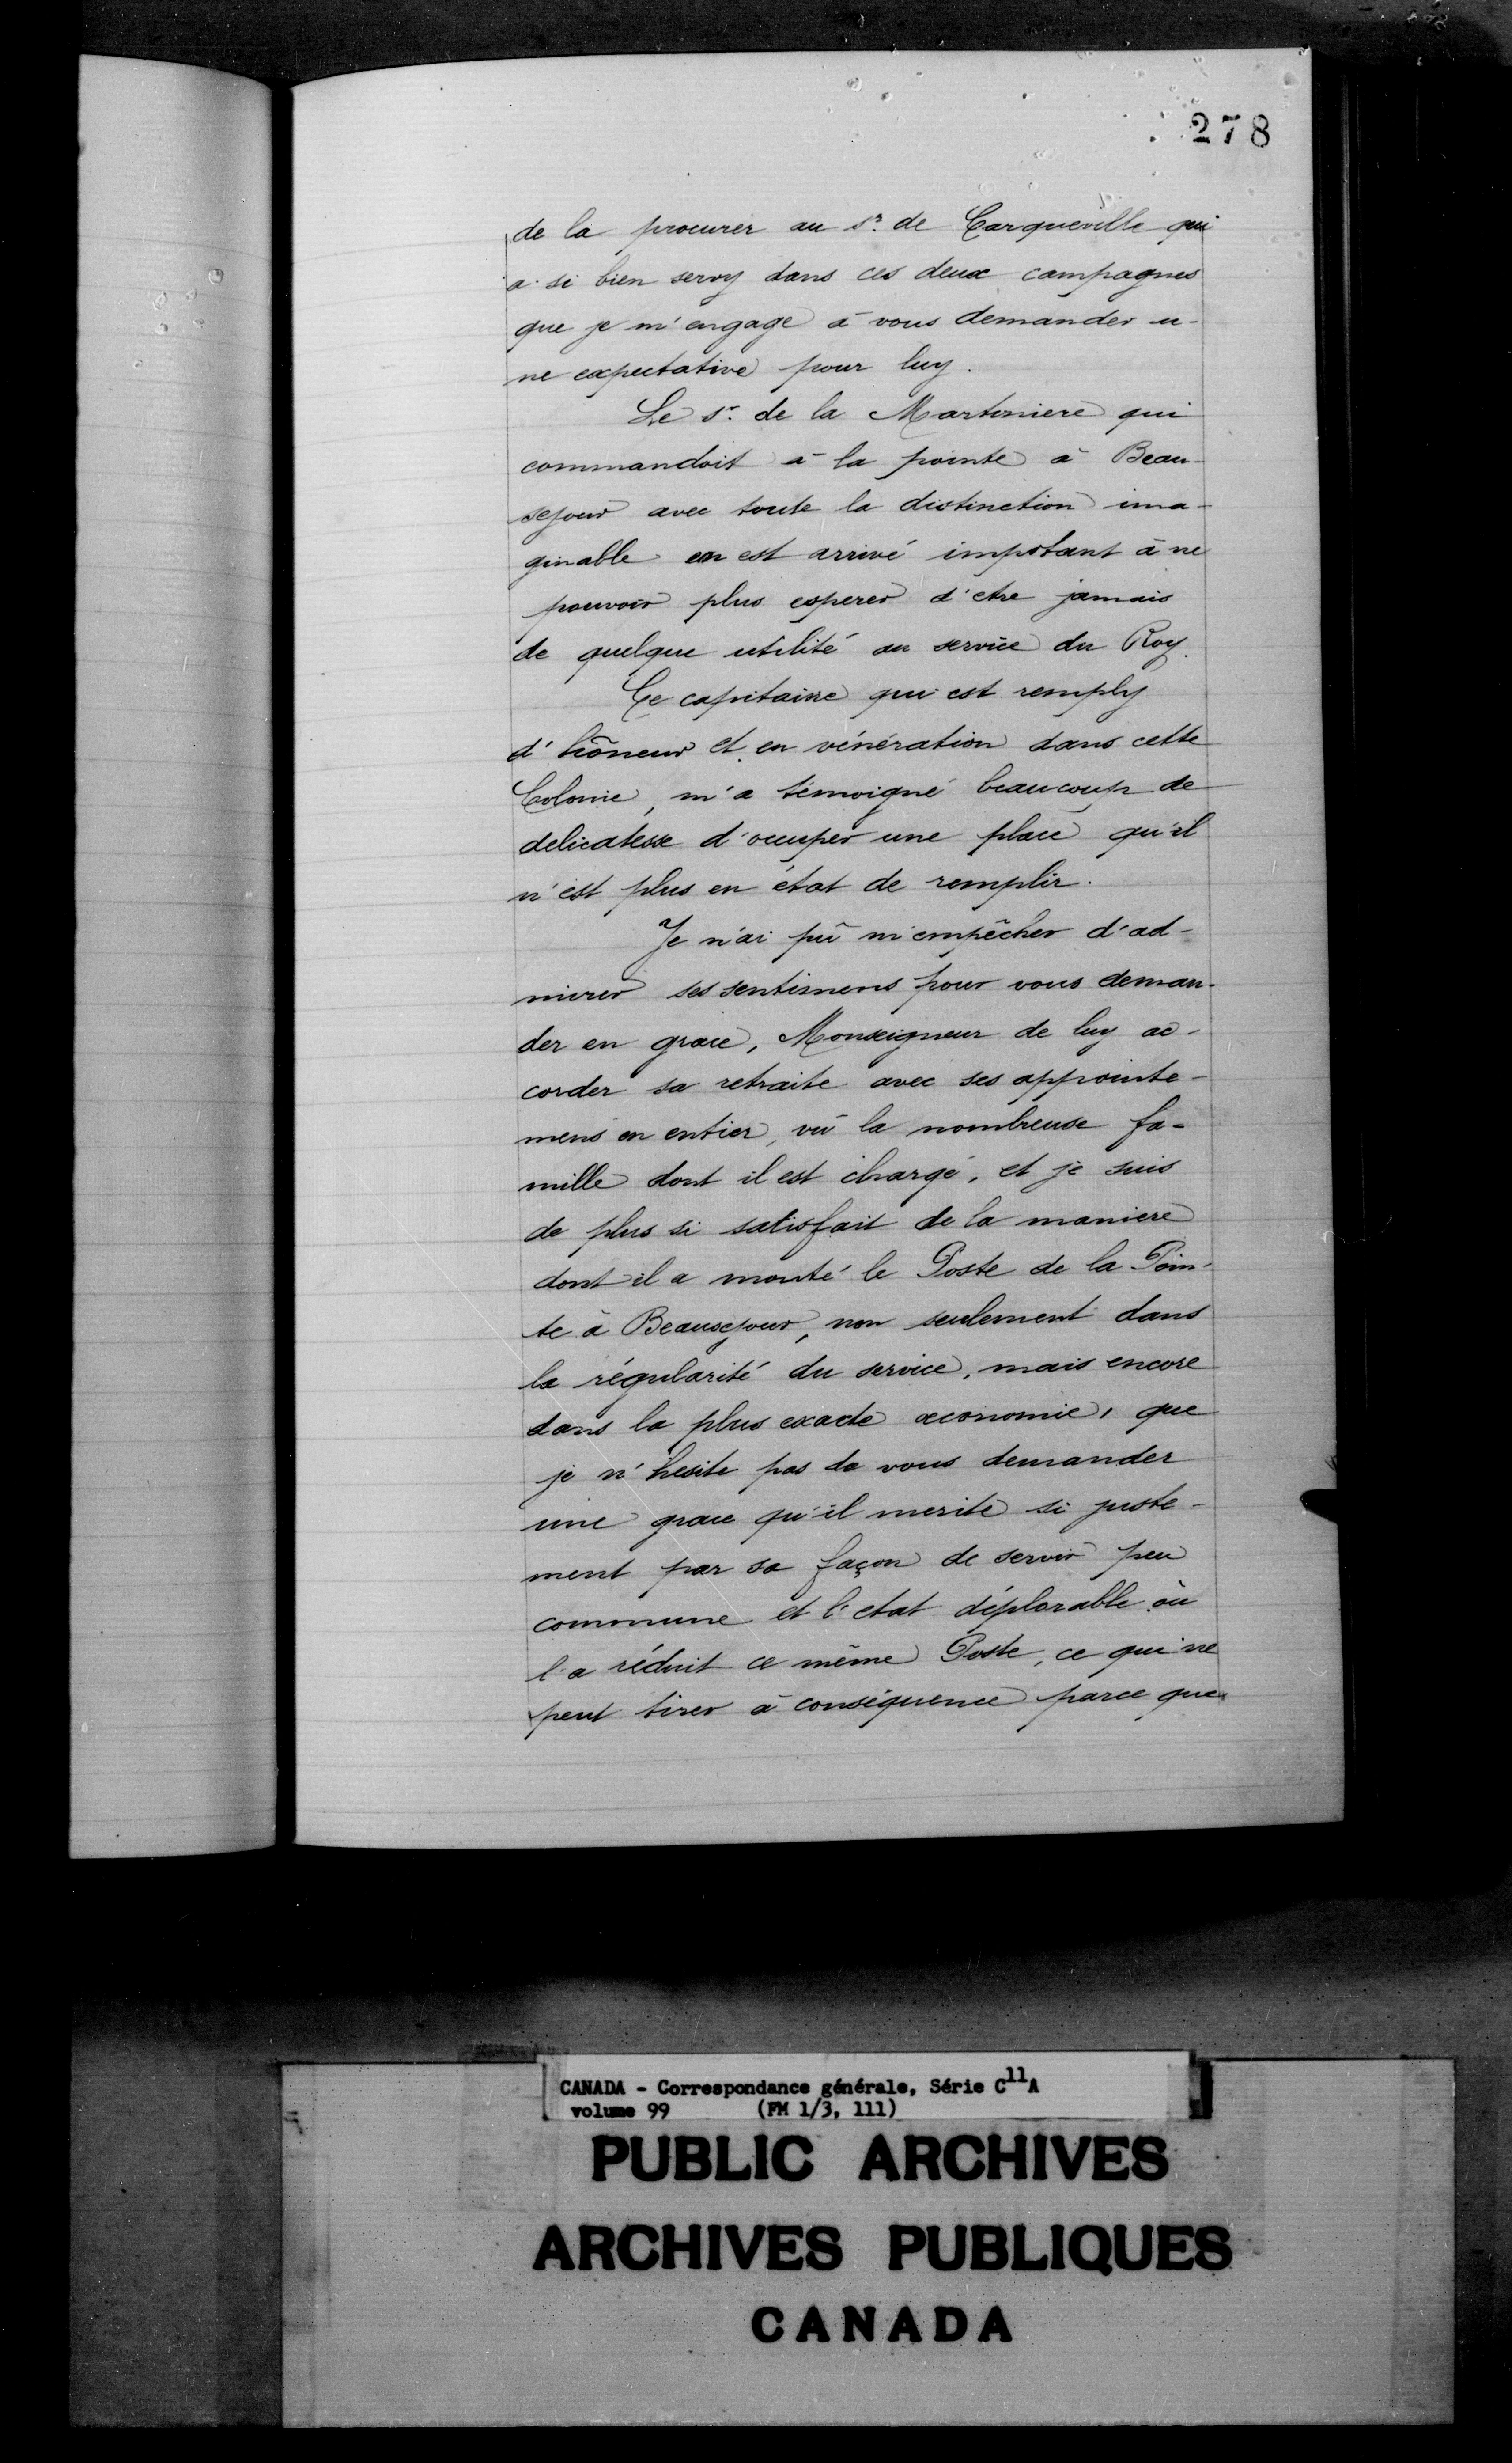 278
de la procurer au sr. de Carqueville qui
a si bien servy dans ces deux campagnes
que je m'engage à vous demander u-
ne expectative pour luy.
Le sr. de la Martiniere qui
commandoit à la pointe à Beau-
sejour avec toute la distinction ima-
ginable en est arrivé impotant à ne
pouvoir plus esperer d'etre jamais
de quelque utilité au service du Roy.
Ce capitaine qui est remply
d'hõneur et en vénération dans cette
Colonie, m'a témoigné beaucoup de
delicatesse d'ocuper une place qu'il
n'est plus en état de remplir.
Je n'ai pû m'empêcher d'ad-
mirer ses sentimens pour vous deman-
der en grace, Monseigneur de luy ac-
corder sa retraite avec ses appointe-
mens en entier, vû la nombreuse fa-
mille dont il est chargé, et je suis
de plus si satisfait de la maniere
dont il a monté le Poste de la Poin-
te à Beausejour, non seulement dans
la régularité du service, mais encore
dans la plus exacte œconomie, que
je n'hesite pas de vous demander
une grace qu'il merite si juste-
ment par sa façon de servir peu
commune et l'etat déplorable où
l'a réduit ce même Poste, ce qui ne
peut tirer à conséquence parce que
CANADA - Correspondance générale, Série C11A
volume 99 (FM 1/3, 111)
PUBLIC ARCHIVES
ARCHIVES PUBLIQUES
CANADA